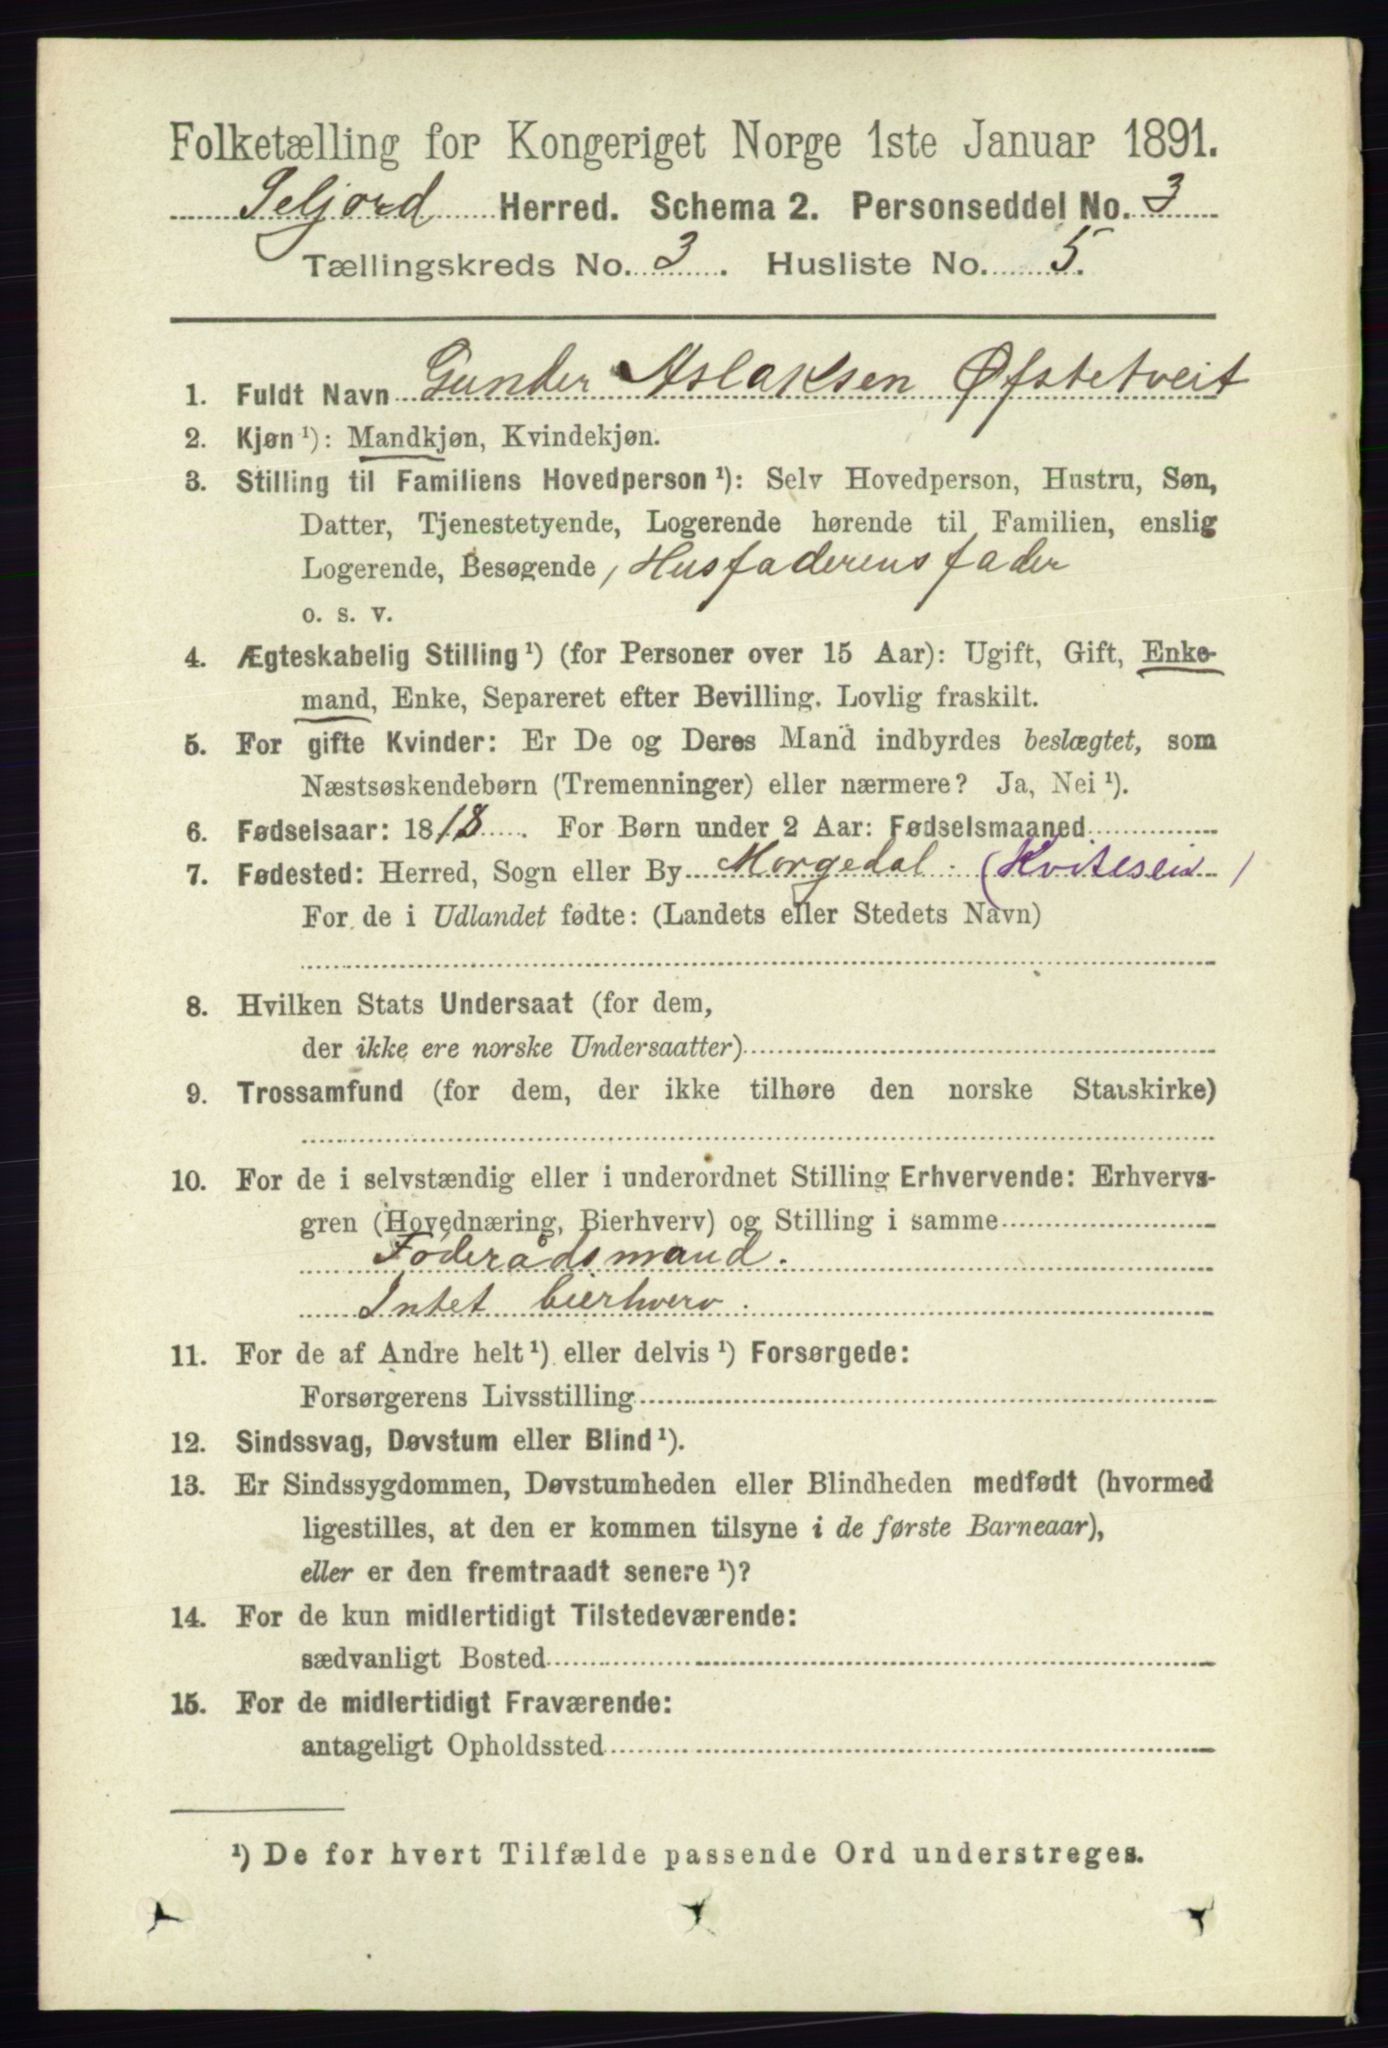 Folketælling for Kongeriget Norge 1ste Januar 1891.
Seljord Herred. Schema 2. Personseddel No. 3
Tællingskreds No. 3. Husliste No. 5.
1. Fuldt Navn Gunder Aslaksen Øfstetveit
2. Kjøn¹): Mandkjøn, Kvindekjøn.
3. Stilling til Familiens Hovedperson¹): Selv Hovedperson, Hustru, Søn,
Datter, Tjenestetyende, Logerende hørende til Familien, enslig
Logerende, Besøgende, Husfaderens fader
o. s. v.
4. Ægteskabelig Stilling¹) (for Personer over 15 Aar): Ugift, Gift, Enke-
mand, Enke, Separeret efter Bevilling. Lovlig fraskilt.
5. For gifte Kvinder: Er De og Deres Mand indbyrdes beslægtet, som
Næstsøskendebørn (Tremenninger) eller nærmere? Ja, Nei¹).
6. Fødselsaar: 1818. For Børn under 2 Aar: Fødselsmaaned
7. Fødested: Herred, Sogn eller By Morgedal. (Kviteseid)
For de i Udlandet fødte: (Landets eller Stedets Navn)
8. Hvilken Stats Undersaat (for dem,
der ikke ere norske Undersaatter)
9. Trossamfund (for dem, der ikke tilhøre den norske Statskirke)
10. For de i selvstændig eller i underordnet Stilling Erhvervende: Erhvervs-
gren (Hovednæring, Bierhverv) og Stilling i samme
Føderådsmand.
Intet bierhverv.
11. For de af Andre helt¹) eller delvis¹) Forsørgede:
Forsørgerens Livsstilling
12. Sindssvag, Døvstum eller Blind¹).
13. Er Sindssygdommen, Døvstumheden eller Blindheden medfødt (hvormed
ligestilles, at den er kommen tilsyne i de første Barneaar),
eller er den fremtraadt senere¹)?
14. For de kun midlertidigt Tilstedeværende:
sædvanligt Bosted
15. For de midlertidigt Fraværende:
antageligt Opholdssted
¹) De for hvert Tilfælde passende Ord understreges.